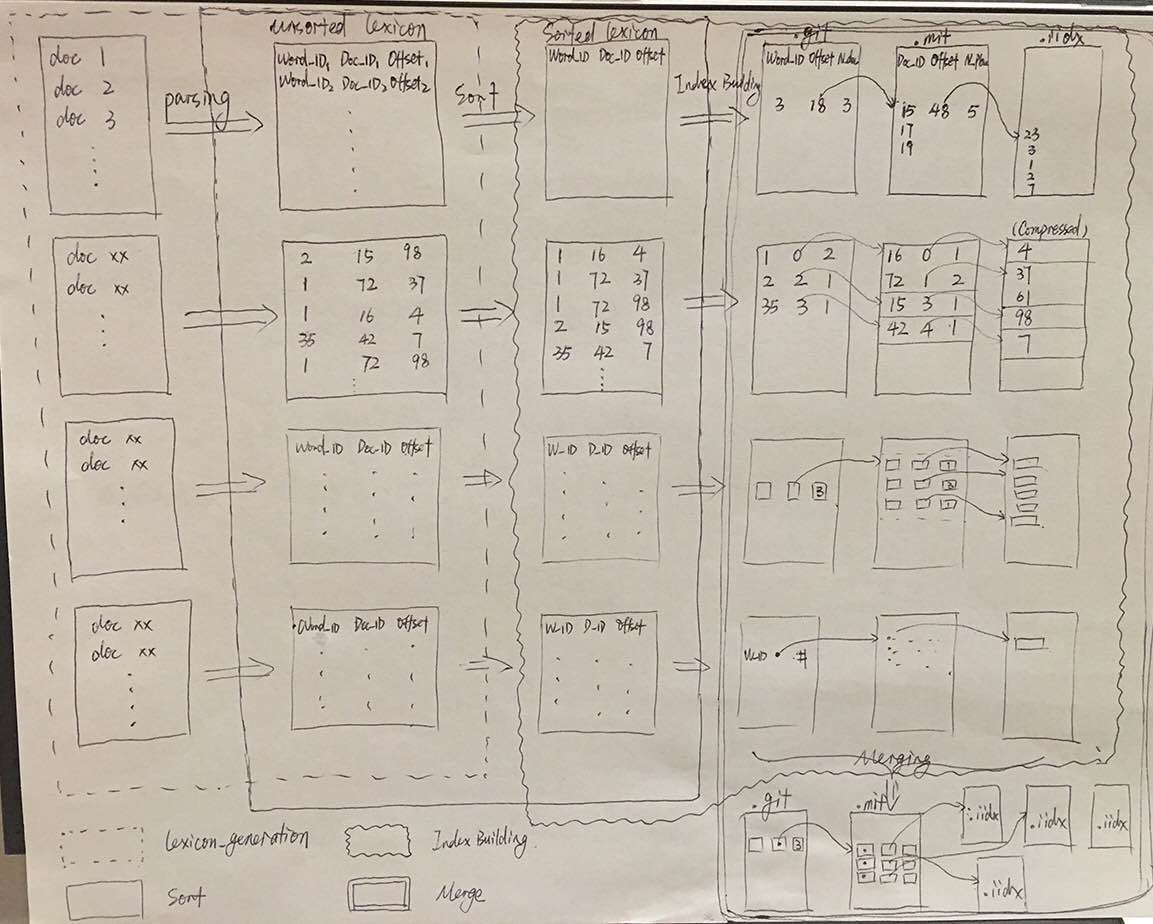 unsorted lexicon
Sorted lexicon
.git
.mit
.iidx
doc 1
doc 2
doc 3
parsing
Word_ID1 Doc_ID1 Offset1
Word_ID2 Doc_ID2 Offset2
Sort
Word_ID Doc_ID Offset
Index Building
Word_ID Offset N_doc
3 18 3
Doc_ID Offset
15 48 5
17
19
23
3
1
2
7
doc xx
doc xx
2 15 98
1 72 37
1 16 4
35 42 7
1 72 98
1 16 4
1 72 37
1 72 98
2 15 98
35 42 7
1 0 2
2 2 1
35 3 1
16 0 1
72 1 2
15 3 1
42 4 1
(Compressed)
4
37
61
98
7
doc xx
doc xx
Word_ID Doc_ID Offset
W_ID D_ID Offset
3
1
1
doc xx
doc xx
Word_ID Doc_ID Offset
W_ID D_ID Offset
W_ID #
Merging
.git
3
.mit
.iidx
.iidx
.iidx
.iidx
lexicon_generation
Index Building
Sort
Merge